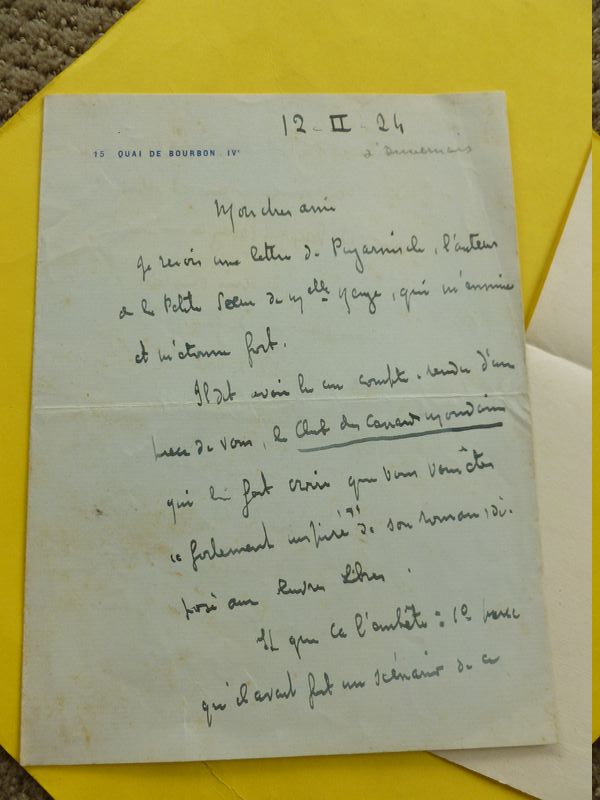 12 - II - 24
15 QUAI DE BOURBON. IVᵉ
d'Duvernois
Mon cher ami
Je reçois une lettre de Puyarnisclé, l'auteur
de la Petite Sœur de Mlle, qui m'ennuie
et m'étonne fort.
Il dit avoir lu un compte-rendu d'une
pièce de vous, le Club des Canards Mondains
qui lui fait croire que vous vous êtes
"fortement inspiré" de son roman, dé-
posé aux Œuvres Libres.
Et que ça l'embête : 1º parce
qu'il avait fait un scénario de ce